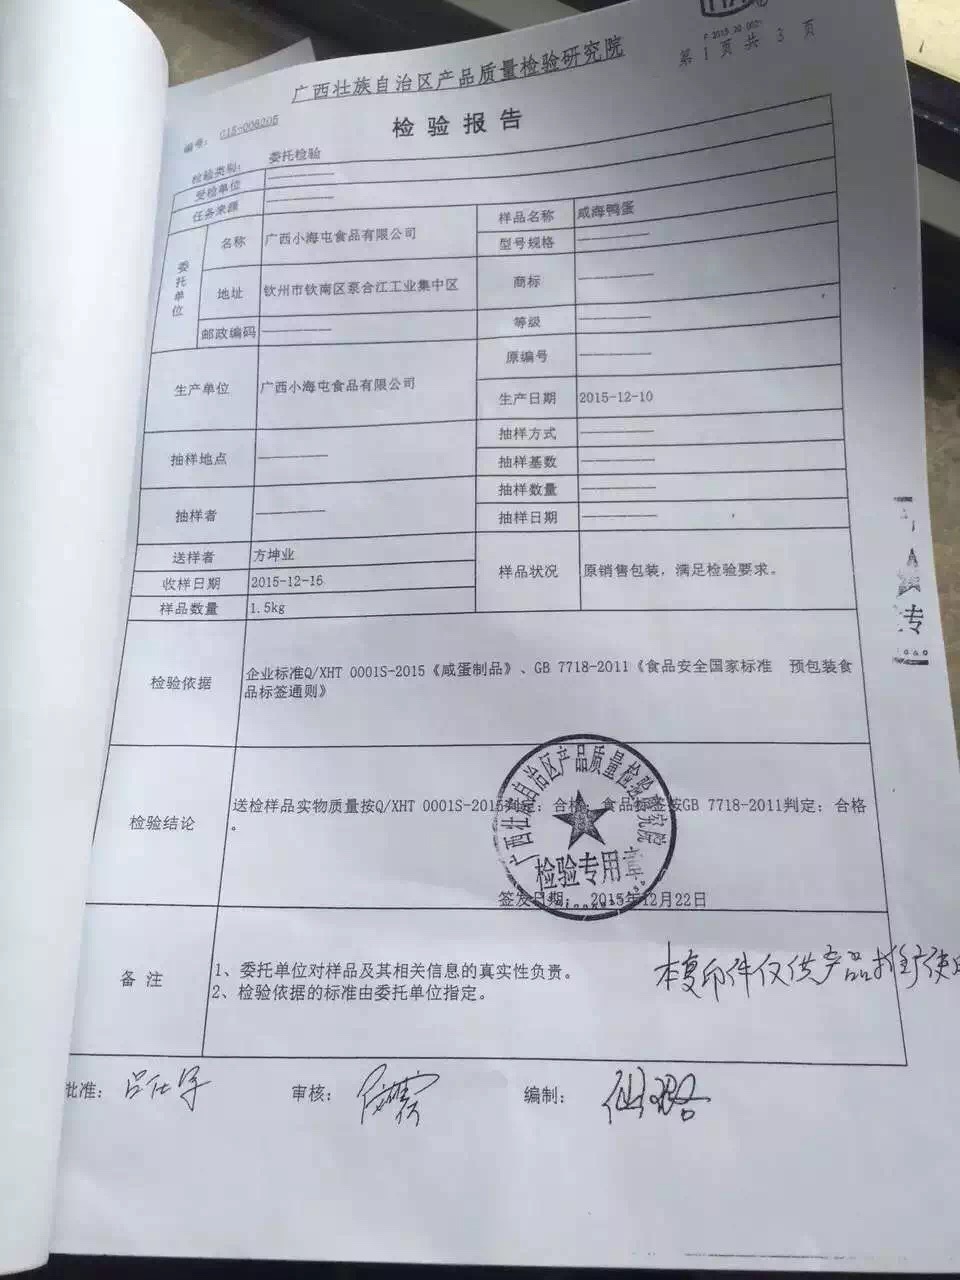 F 2015 20 0021
第 1 页 共 3 页
广西壮族自治区产品质量检验研究院
检验报告
编号： C15-006205
检验类别： 委托检验
受检单位 ————
任务来源 ————
委托单位 名称 广西小海屯食品有限公司 样品名称 咸海鸭蛋
型号规格 ————
地址 钦州市钦南区泵合江工业集中区 商标 ————
邮政编码 ———— 等级 ————
生产单位 广西小海屯食品有限公司 原编号 ————
生产日期 2015-12-10
抽样地点 ———— 抽样方式 ————
抽样基数 ————
抽样者 ———— 抽样数量 ————
抽样日期 ————
送样者 方坤业 样品状况 原销售包装，满足检验要求。
收样日期 2015-12-16
样品数量 1.5kg
检验依据 企业标准Q/XHT 0001S-2015《咸蛋制品》、GB 7718-2011《食品安全国家标准 预包装食
品标签通则》
检验结论 送检样品实物质量按Q/XHT 0001S-2015判定：合格；食品标签按GB 7718-2011判定：合格
。
广西壮族自治区产品质量检验研究院
检验专用章
签发日期： 2015年12月22日
备注 1、委托单位对样品及其相关信息的真实性负责。
2、检验依据的标准由委托单位指定。
本复印件仅供产品推广使用
批准： 审核： 编制：